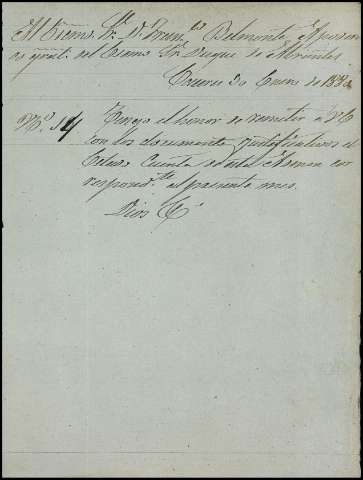 Al Excmo. Sr. Dn. Franco. Belmonte, Apoderado
gral. del Excmo. Sr. Duque de Abrantes
Caceres 30 Enero de
No. 14 Tengo el honor de remitir a V.E.
con los documentos justificativos el
cuenta de esta Admon cor
respondte. al presente mes.
Dios &a